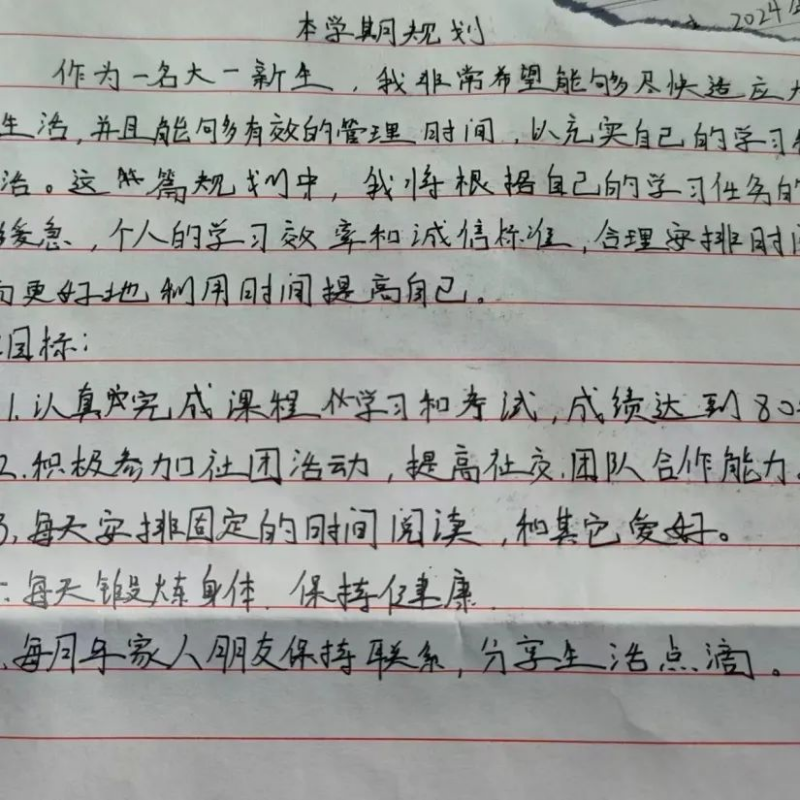 2024
本学期规划
作为一名大一新生，我非常希望能够尽快适应
生活，并且能够多有效的管理时间，以充实自己的学习
活。这篇规划中，我将根据自己的学习任务的
缓急，个人的学习效率和诚信标准，合理安排时
更好地利用时间提高自己。
目标：
1.认真完成课程学习和考试，成绩达到80
2.积极参加社团活动，提高社交.团队合作能力。
3.每天安排固定的时间阅读，和其它爱好。
：每天锻炼身体.保持健康.
.每月与家人朋友保持联系，分享生活点滴。